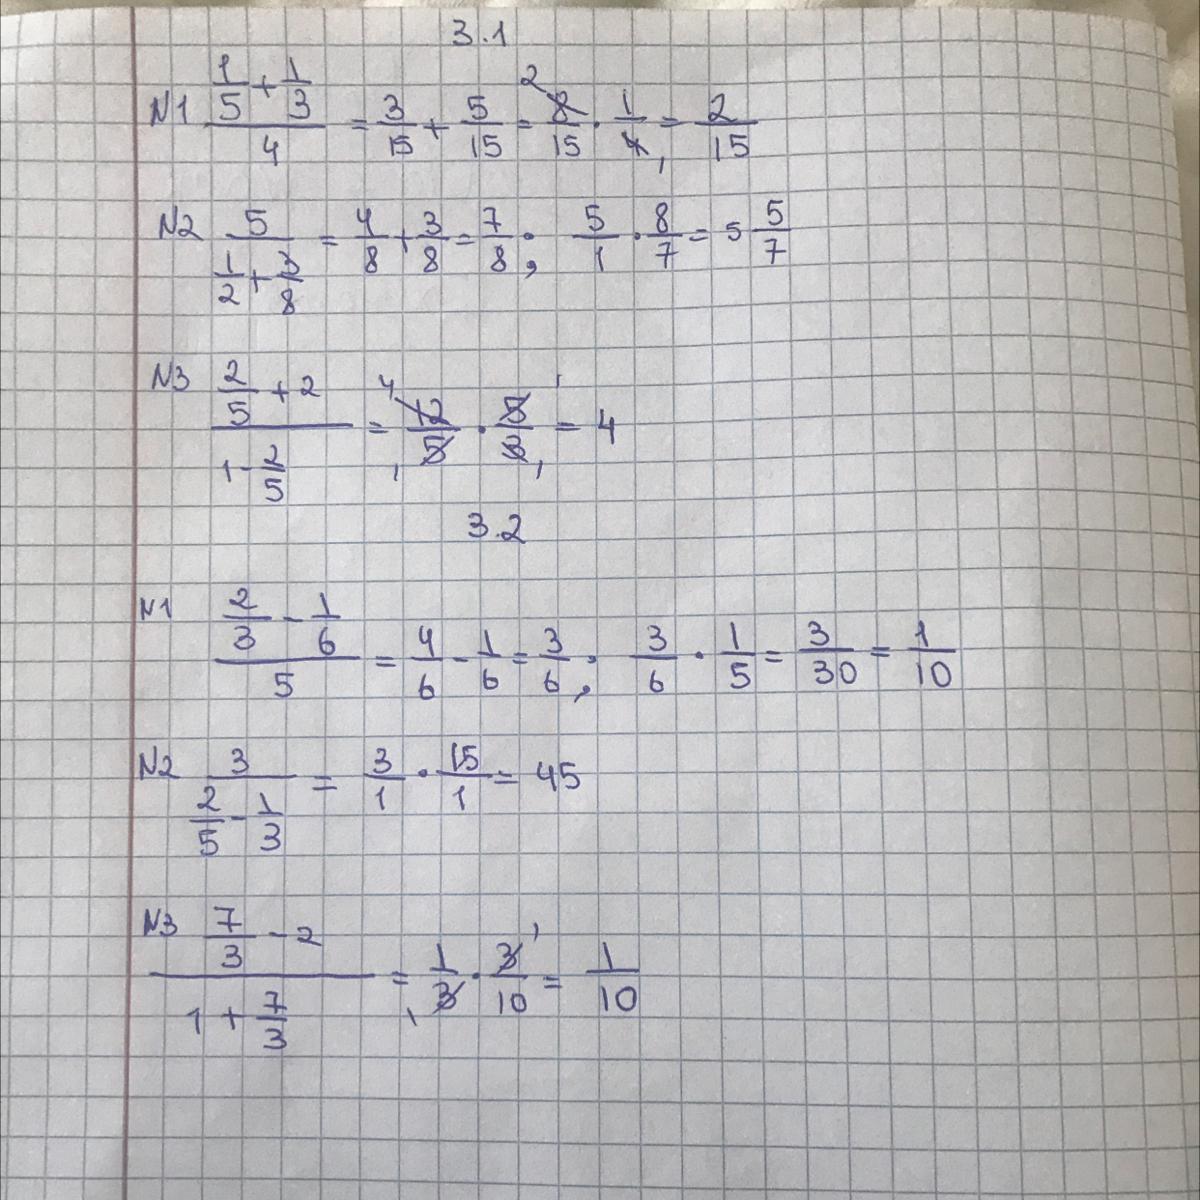 3.1
N1 (1/5 + 1/3)/4 = 3/15 + 5/15 = 8/15 · 1/4 = 2/15
N2 5/(1/2 + 3/8) = 4/8 + 3/8 = 7/8 ; 5/1 · 8/7 = 5 5/7
N3 (2/5 + 2)/(1 - 2/5) = 12/5 · 5/3 = 4
3.2
N1 (2/3 - 1/6)/5 = 4/6 - 1/6 = 3/6 ; 3/6 · 1/5 = 3/30 = 1/10
N2 3/(2/5 - 1/3) = 3/1 · 15/1 = 45
N3 (7/3 - 2)/(1 + 7/3) = 1/3 · 3/10 = 1/10